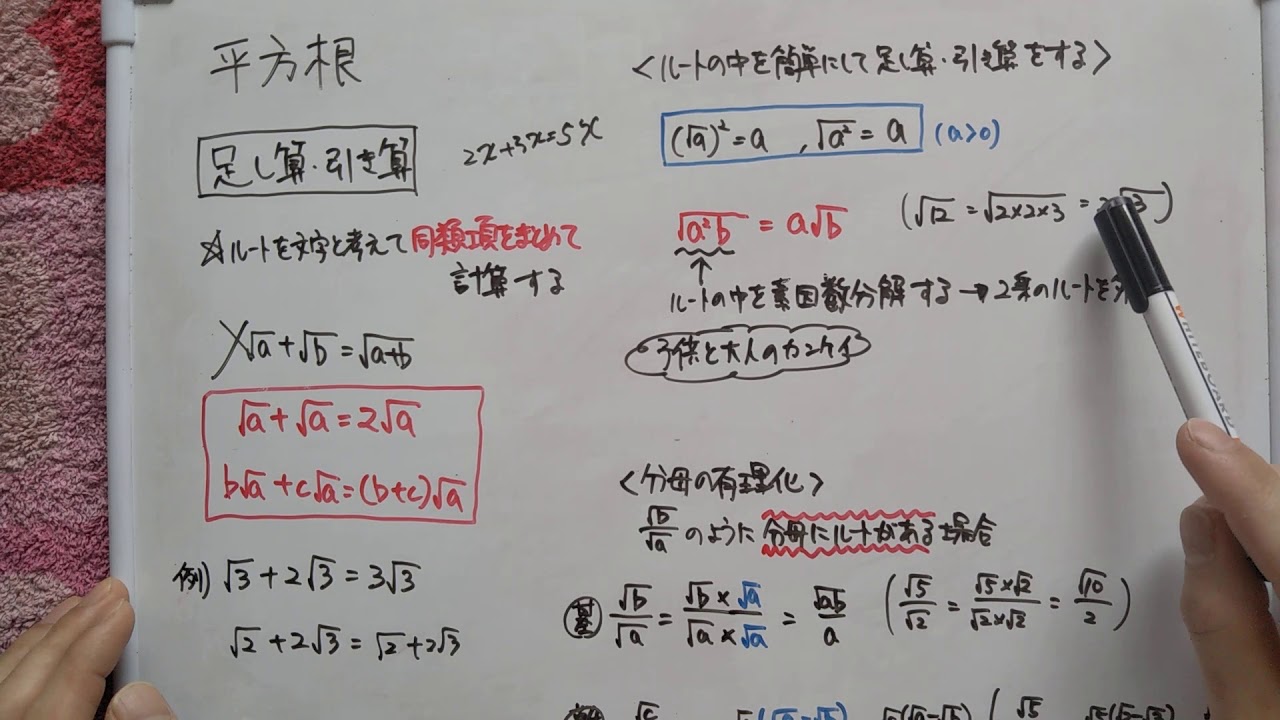 平方根
足し算・引き算
2x+3x=5x
☆ルートを文字と考えて同類項をまとめて
計算する
√a+√b=√a+b
√a+√a=2√a
b√a+c√a=(b+c)√a
例) √3+2√3=3√3
√2+2√3=√2+2√3
<ルートの中を簡単にして足し算・引き算をする>
(√a)²=a , √a²=a (a>0)
√a²b = a√b
(√12=√2×2×3=2√3)
↑
ルートの中を素因数分解する→2乗のルートを
・子供と大人のカンケイ
<分母の有理化>
√b/√a のように分母にルートがある場合
基 √b/√a = √b×√a/√a×√a = √ab/a (√5/√2 = √5×√2/√2×√2 = √10/2)
WHITEBOARD